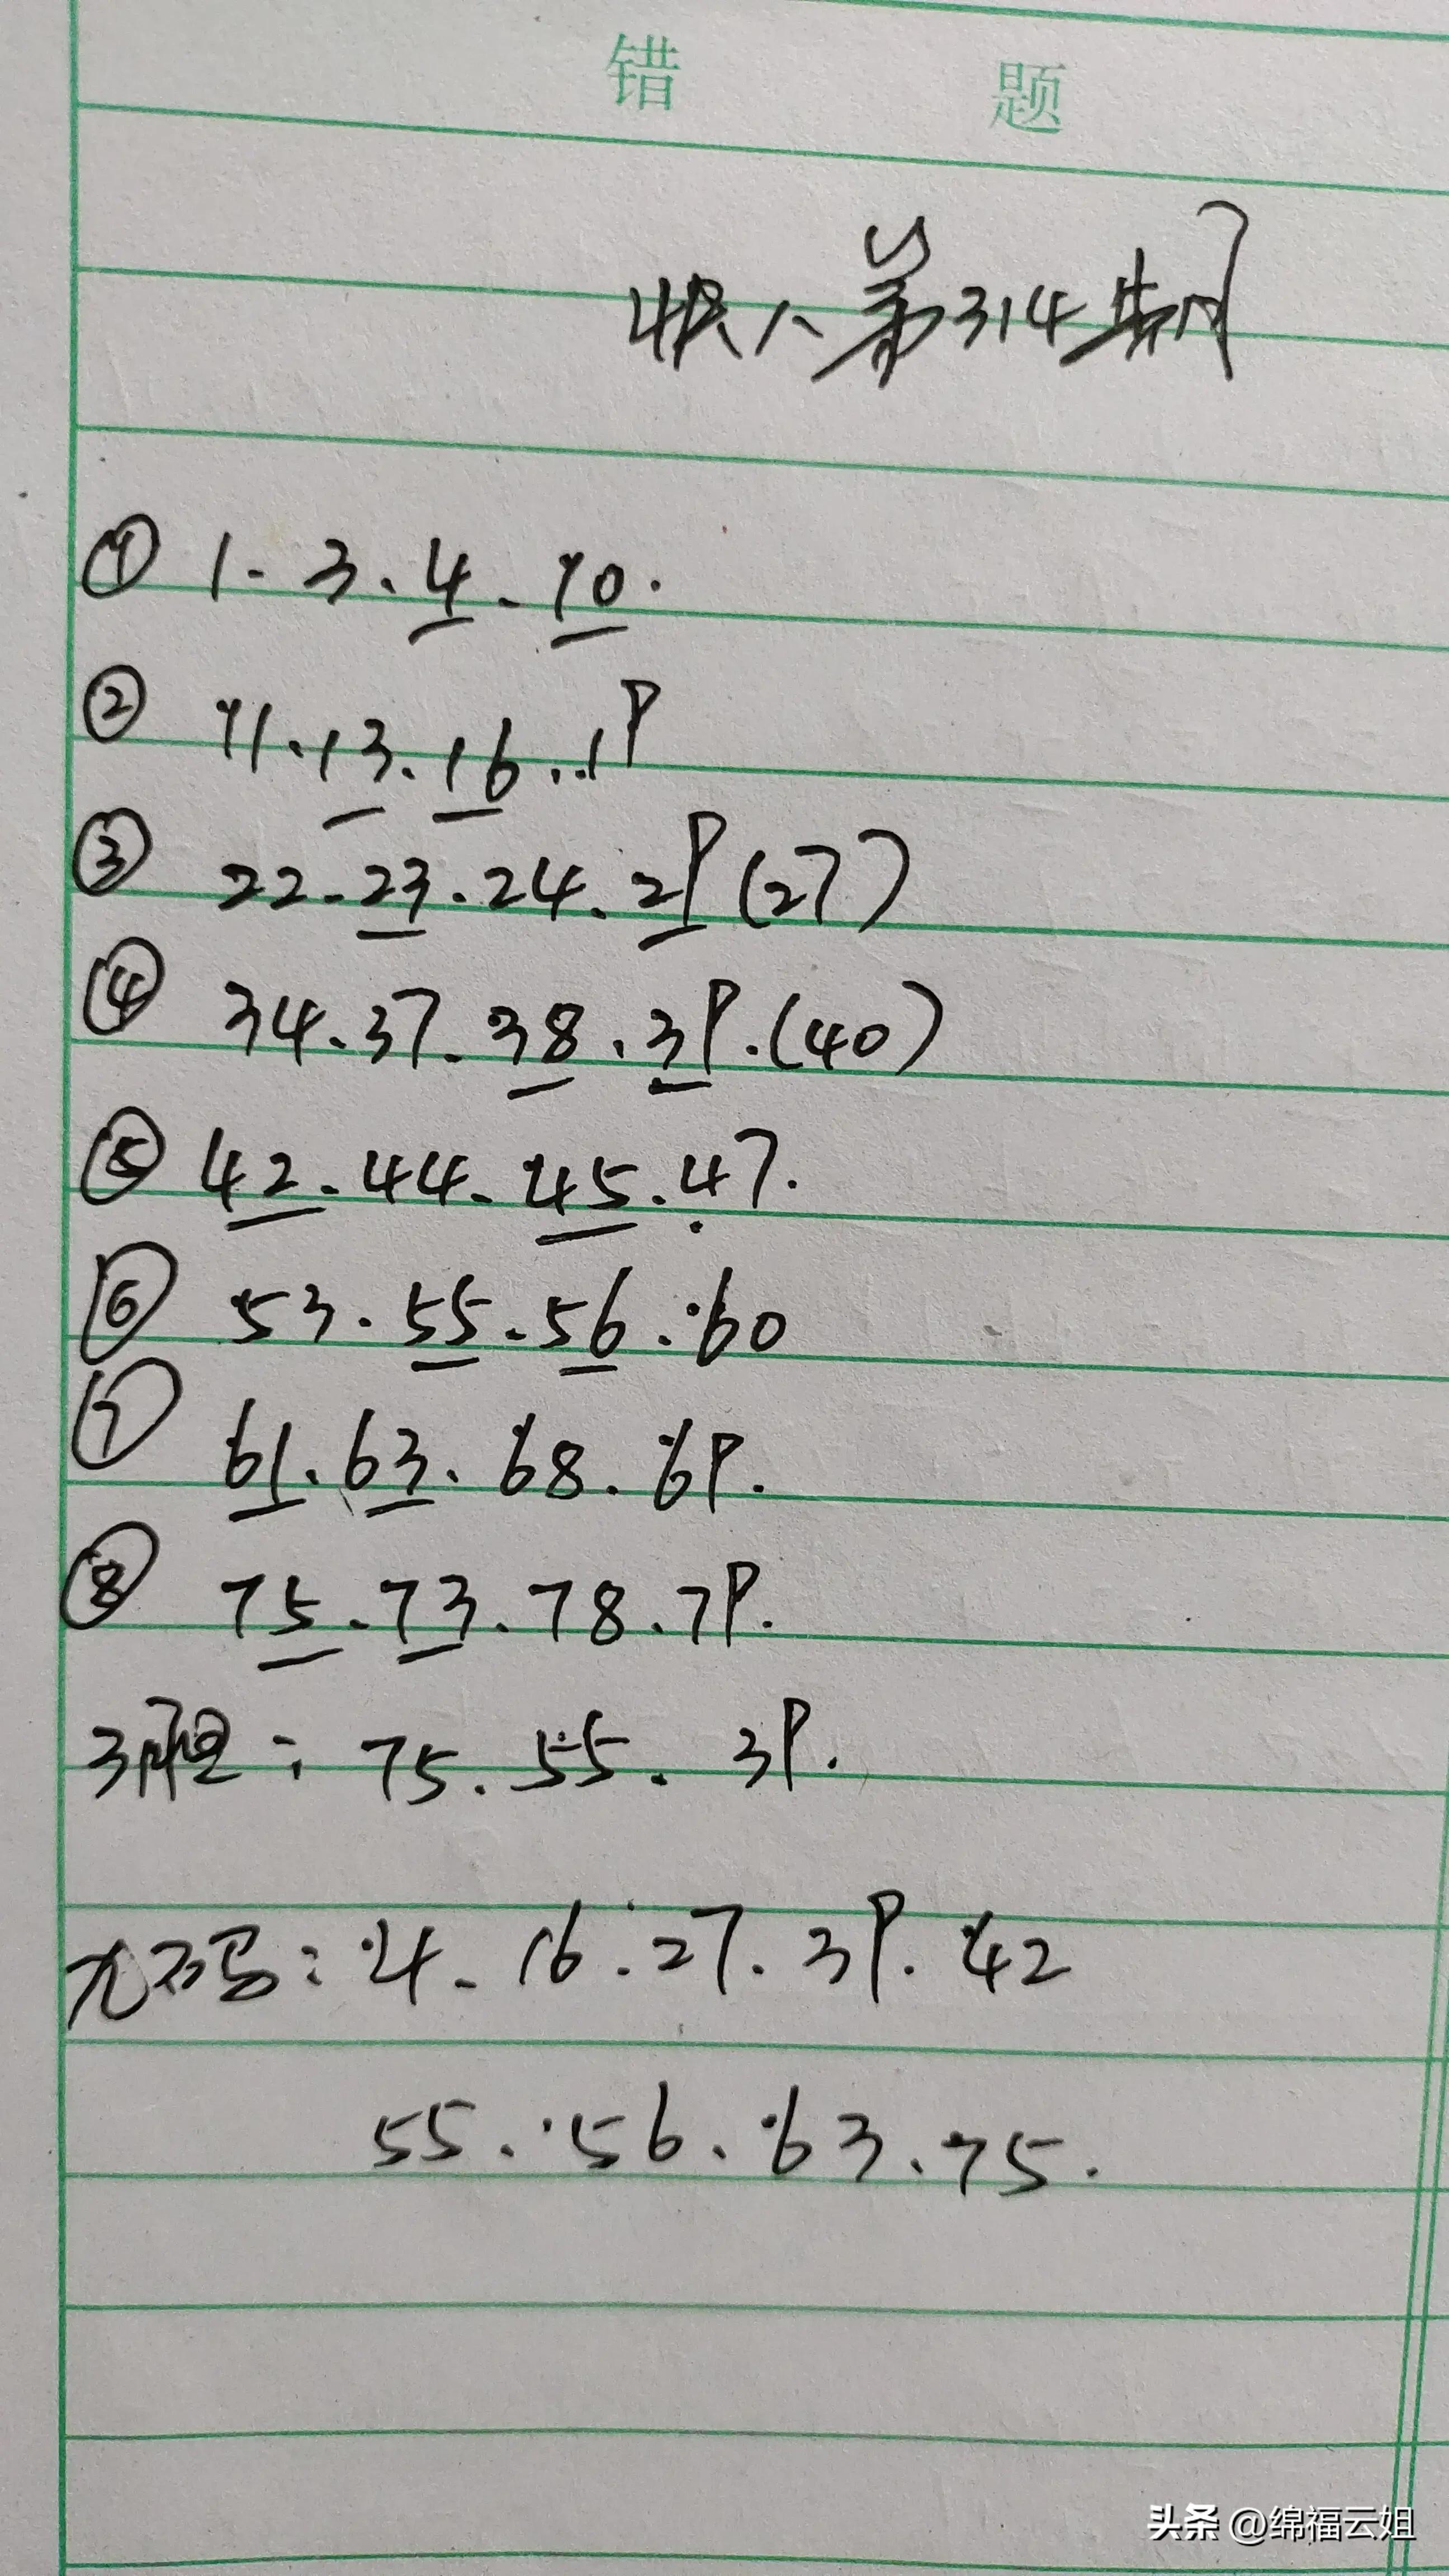 错 题
快八第314期
① 1. 3. 4. 10.
② 11. 13. 16. 19
③ 22. 23. 24. 29 (27)
④ 34. 37. 38. 39. (40)
⑤ 42. 44. 45. 47.
⑥ 53. 55. 56. 60
⑦ 61. 63. 68. 69.
⑧ 75. 73. 78. 79.
3胆: 75. 55. 39.
九码: 4. 16. 27. 39. 42
55. 56. 63. 75.
头条 @绵福云姐